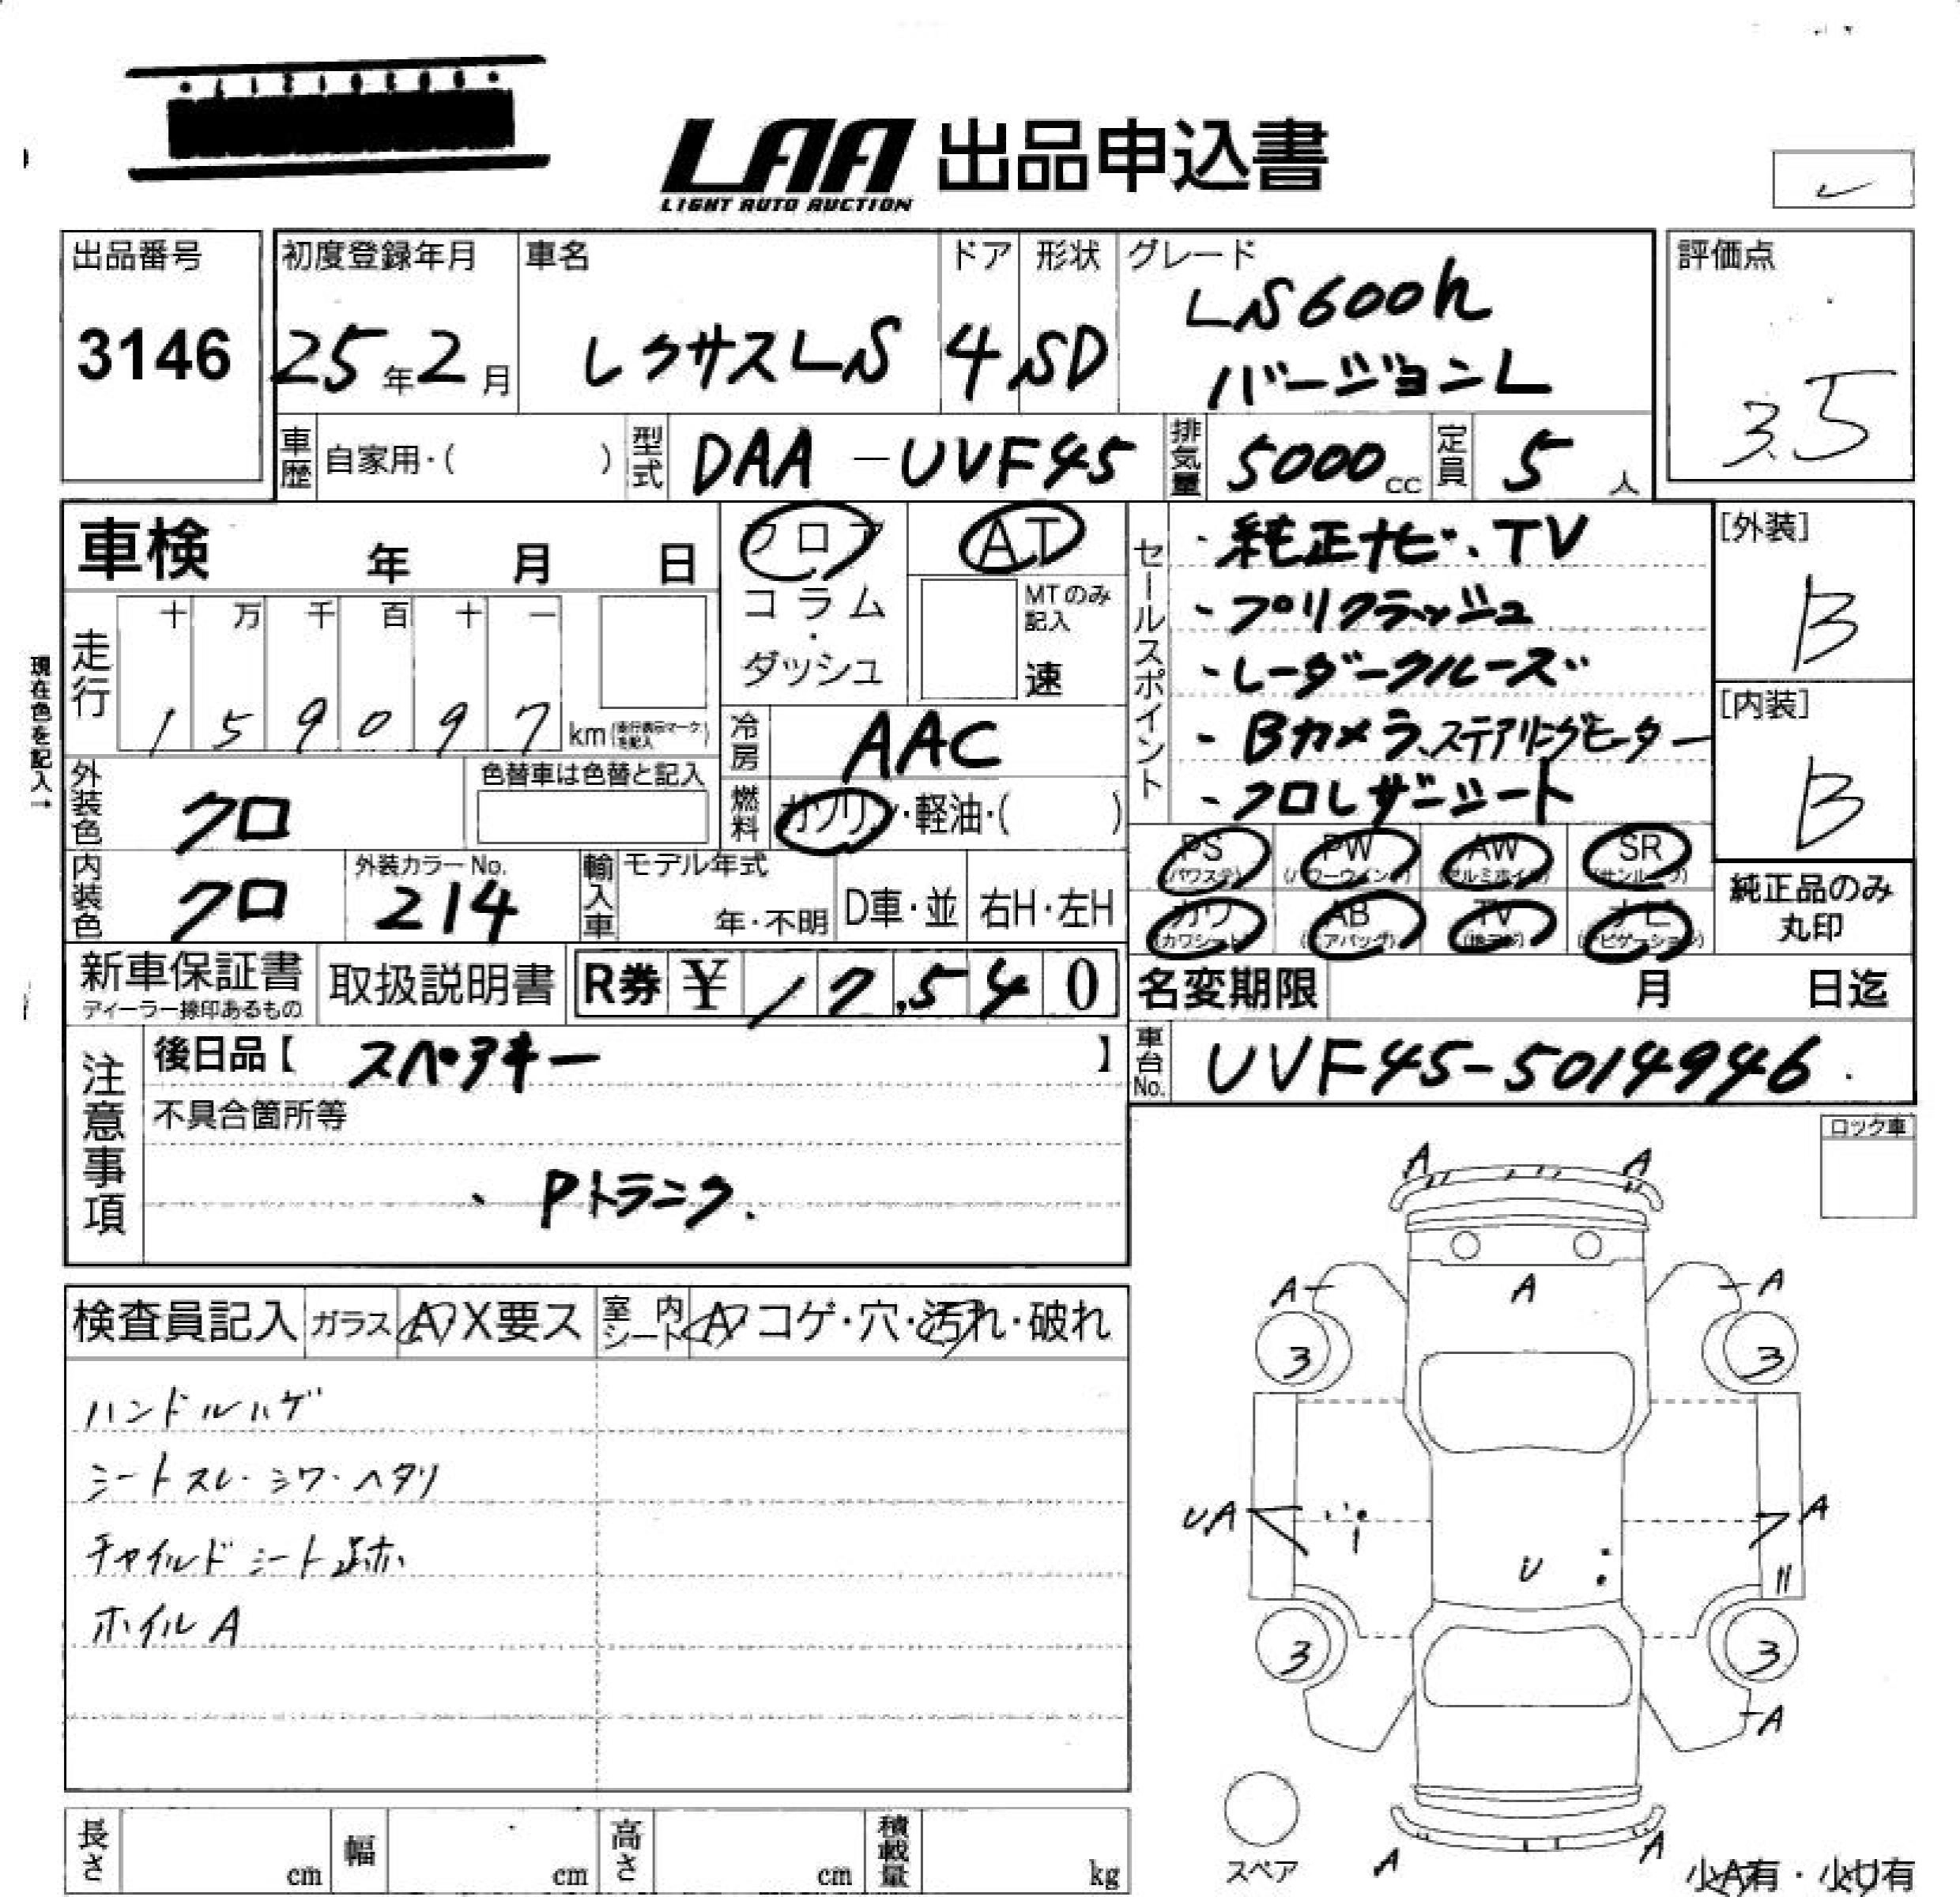 LAA 出品申込書
LIGHT AUTO AUCTION
出品番号
3146
初度登録年月
25年2月
車名
レクサスLS
ドア
4
形状
SD
グレード
LS600h
バージョンL
評価点
3.5
車歴 自家用・( )
型式 DAA-UVF45
排気量 5000cc
定員 5人
車検 年 月 日
フロア
コラム
・
ダッシュ
AT
MTのみ記入
速
走行
十 万 千 百 十 一
1 5 9 0 9 7 km(走行表示マークを記入)
現在色を記入→
冷房 AAC
外装色 クロ
色替車は色替と記入
燃料 ガソリン・軽油・( )
内装色 クロ
外装カラーNo.
214
輸入車
モデル年式
年・不明
D車・並
右H・左H
セールスポイント
・純正ナビ、TV
・プリクラッシュ
・レーダークルーズ
・Bカメラ、ステアリングヒーター
・クロレザーシート
[外装]
B
[内装]
B
PS (パワステ)
PW (パワーウインド)
AW (アルミホイル)
SR (サンルーフ)
カワ (カワシート)
AB (エアバッグ)
TV (地デジ)
ナビ (ナビゲーション)
純正品のみ
丸印
新車保証書
ディーラー捺印あるもの
取扱説明書
R券 ¥ 17,540
名変期限 月 日迄
注意事項
後日品【 スペアキー 】
不具合箇所等
、Pトランク.
車台No. UVF45-5014946
ロック車
検査員記入
ガラス A X要ス
室内シート A コゲ・穴・汚れ・破れ
ハンドルハゲ
シートスレ・シワ・ヘタリ
チャイルドシート跡
ホイルA
A A
A A A
3 3
UA A
U
3 3
A
A A
スペア
小A有・小U有
長さ cm
幅 cm
高さ cm
積載量 kg